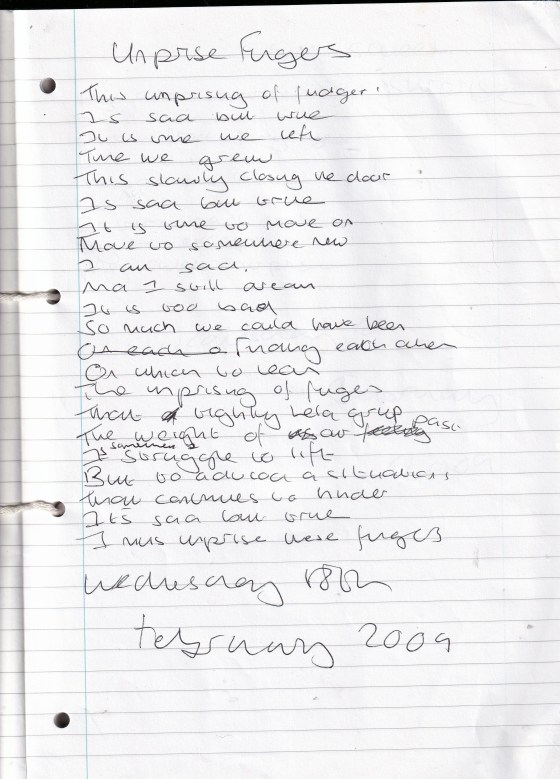 Unprise Fingers
This unprising of finger
Is sad but true
It is time we left
Time we grew
This slowly closing the door
Is sad but true
It is time to move on
Move to somewhere new
I am sad.
And I still dream
It is too bad
So much we could have been
Or each o Finding each other
On which to lean
The unprising of finges
That tightly held grip
The weight of us our past.
Is sometimes a struggle to lift
But to a situation
that continues to hinder
It's sad but true
I must unprise these fingers
Wednesday 18th
February 2009